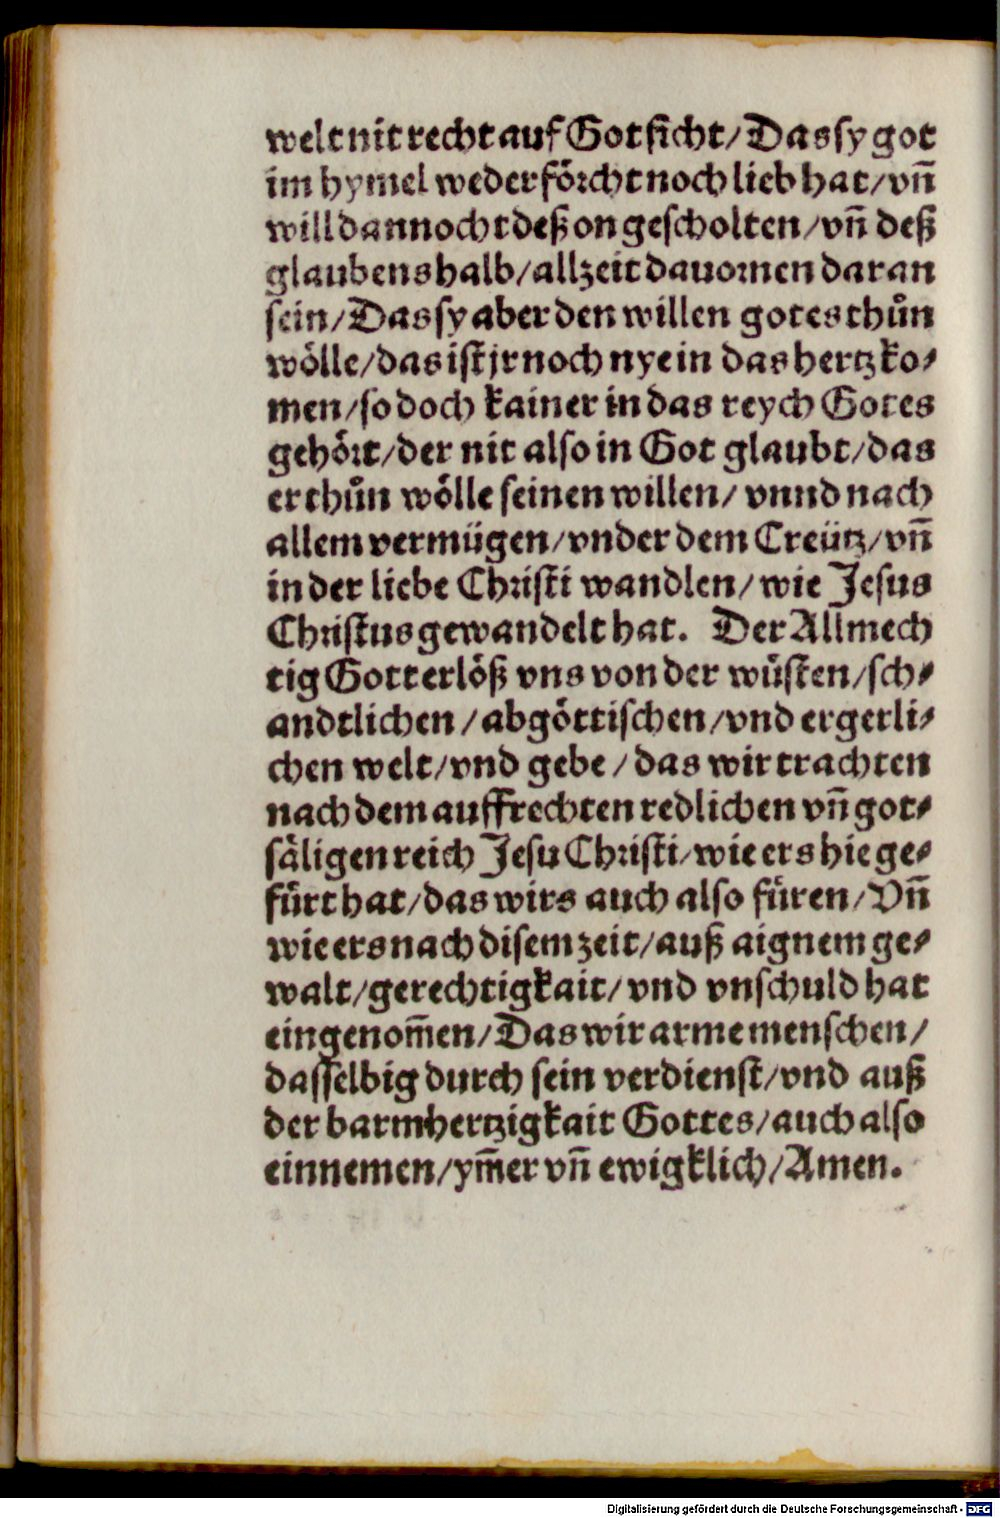 welt nit recht auf Got sicht/ Das sy got
im hymel weder förcht noch lieb hat/ vñ
will dannocht deß on gescholten/ vñ deß
glaubens halb/ allzeit dauornen daran
sein/ Das sy aber den willen gotes thůn
wölle/ das ist jr noch nye in das hertz ko-
men/ so doch kainer in das reych Gotes
gehört/ der nit also in Got glaubt/ das
er thůn wölle seinen willen/ vnnd nach
allem vermügen/ vnder dem Creütz/ vñ
in der liebe Christi wandlen/ wie Jesus
Christus gewandelt hat. Der Allmech
tig Gott erlöß vns von der wůsten/ sch-
andtlichen/ abgöttischen/ vnd ergerli-
chen welt/ vnd gebe/ das wir trachten
nach dem auffrechten redlichen vñ got-
säligen reich Jesu Christi/ wie ers hie ge-
fürt hat/ das wirs auch also füren/ Vñ
wie ers nach disem zeit/ auß aignem ge-
walt/ gerechtigkait/ vnd vnschuld hat
eingenom̃en/ Das wir arme menschen/
dasselbig durch sein verdienst/ vnd auß
der barmhertzigkait Gottes/ auch also
einnemen/ ym̃er vñ ewigklich/ Amen.
Digitalisierung gefördert durch die Deutsche Forschungsgemeinschaft - DFG